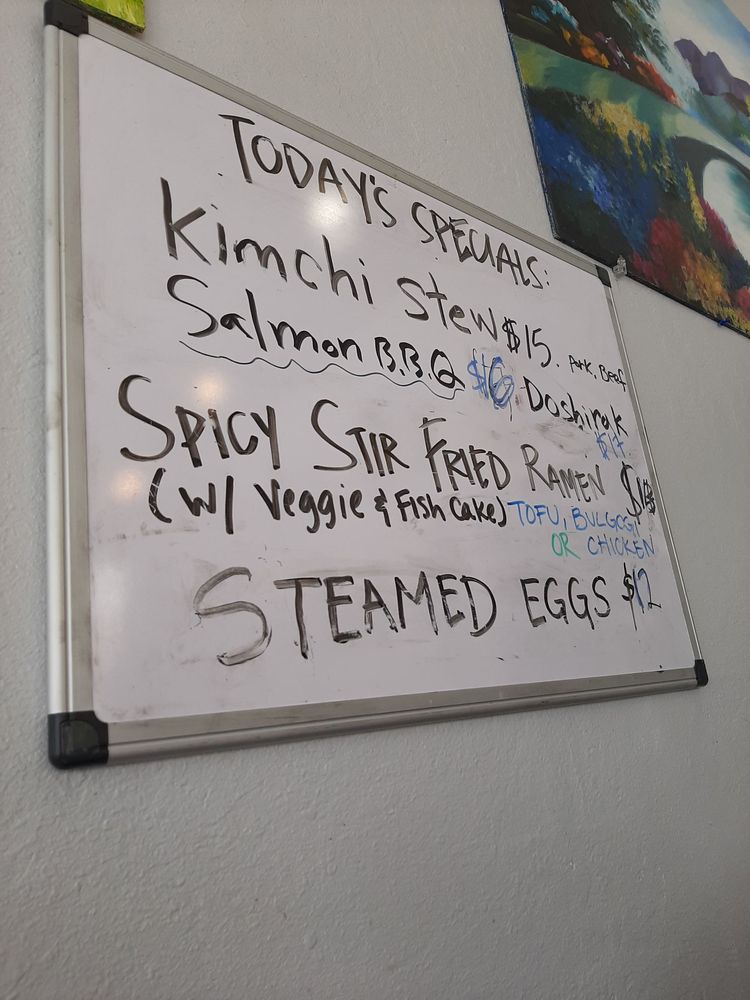 TODAY'S SPECIALS:
Kimchi Stew $15. Pork, Beef
Salmon B.B.Q $16, Doshirak
$17
SPICY STIR FRIED RAMEN
(W/ Veggie & Fish Cake) TOFU, BULGOGI
OR CHICKEN
STEAMED EGGS $12